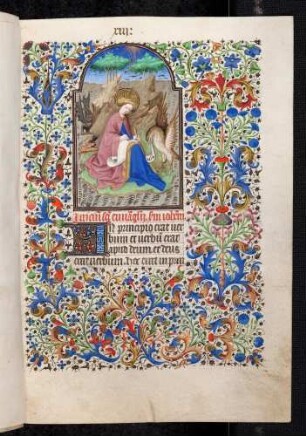 xiii:
Inicium sci euuangelij scdm iohem
In principio erat uer
bum et uerbū erat
apud deum. et deus
erat uerbum. hoc erat in prin